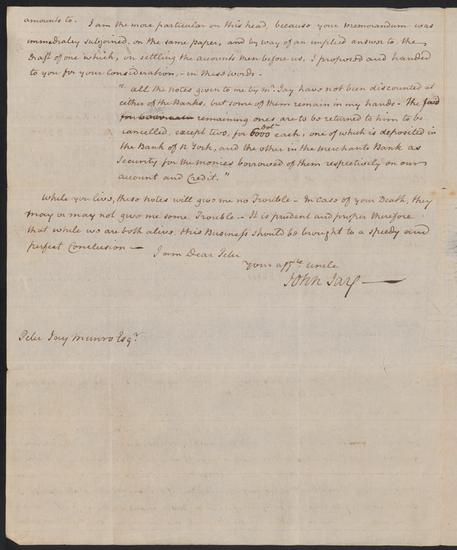 amounts to. I am the more particular on this head, because your Memorandum was
immediately subjoined, on the same paper, and by way of an implied answer to, the
Draft of one which, on settling the accounts then before us, I proposed and handed
to you for your Consideration, - in these words -
"all the notes given to me by Mr. Jay have not been discounted at
either of the Banks, but some of them remain in my hands - The said
remaining ones are to be returned to him to be
cancelled, except two, for 6000 Dolrs each, one of which is deposited in
the Bank of N York, and the other in the Merchants Bank as
Security for the monies borrowed of them respectively on our
account and Credit."
While you live, these notes will give me no Trouble - In case of your Death, they
may or may not give me some Trouble - It is prudent and proper therefore
that while we are both alive, this Business should be brought to a speedy and
perfect Conclusion -
I am Dear Peter
Your affte. Uncle
John Jay -
Peter Jay Munro Esqr.